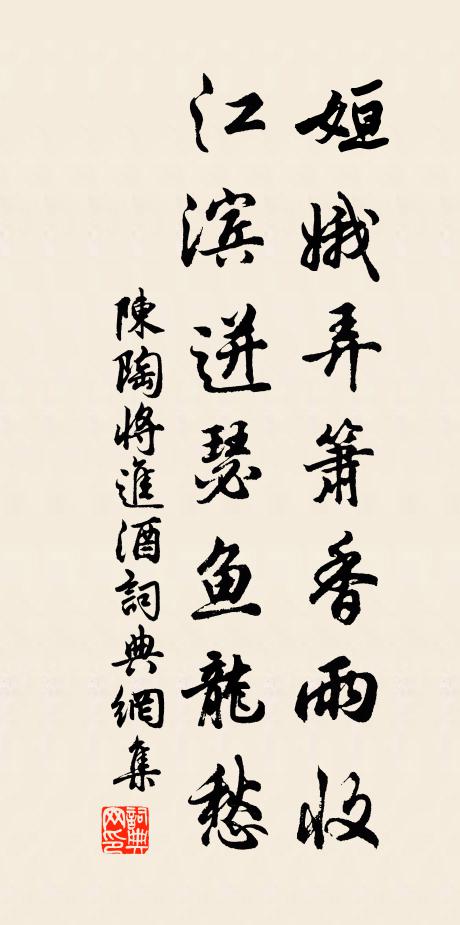 姮娥弄箫香雨收
江滨迸瑟鱼龍愁
陳陶將進酒詞典網集
詞典网印